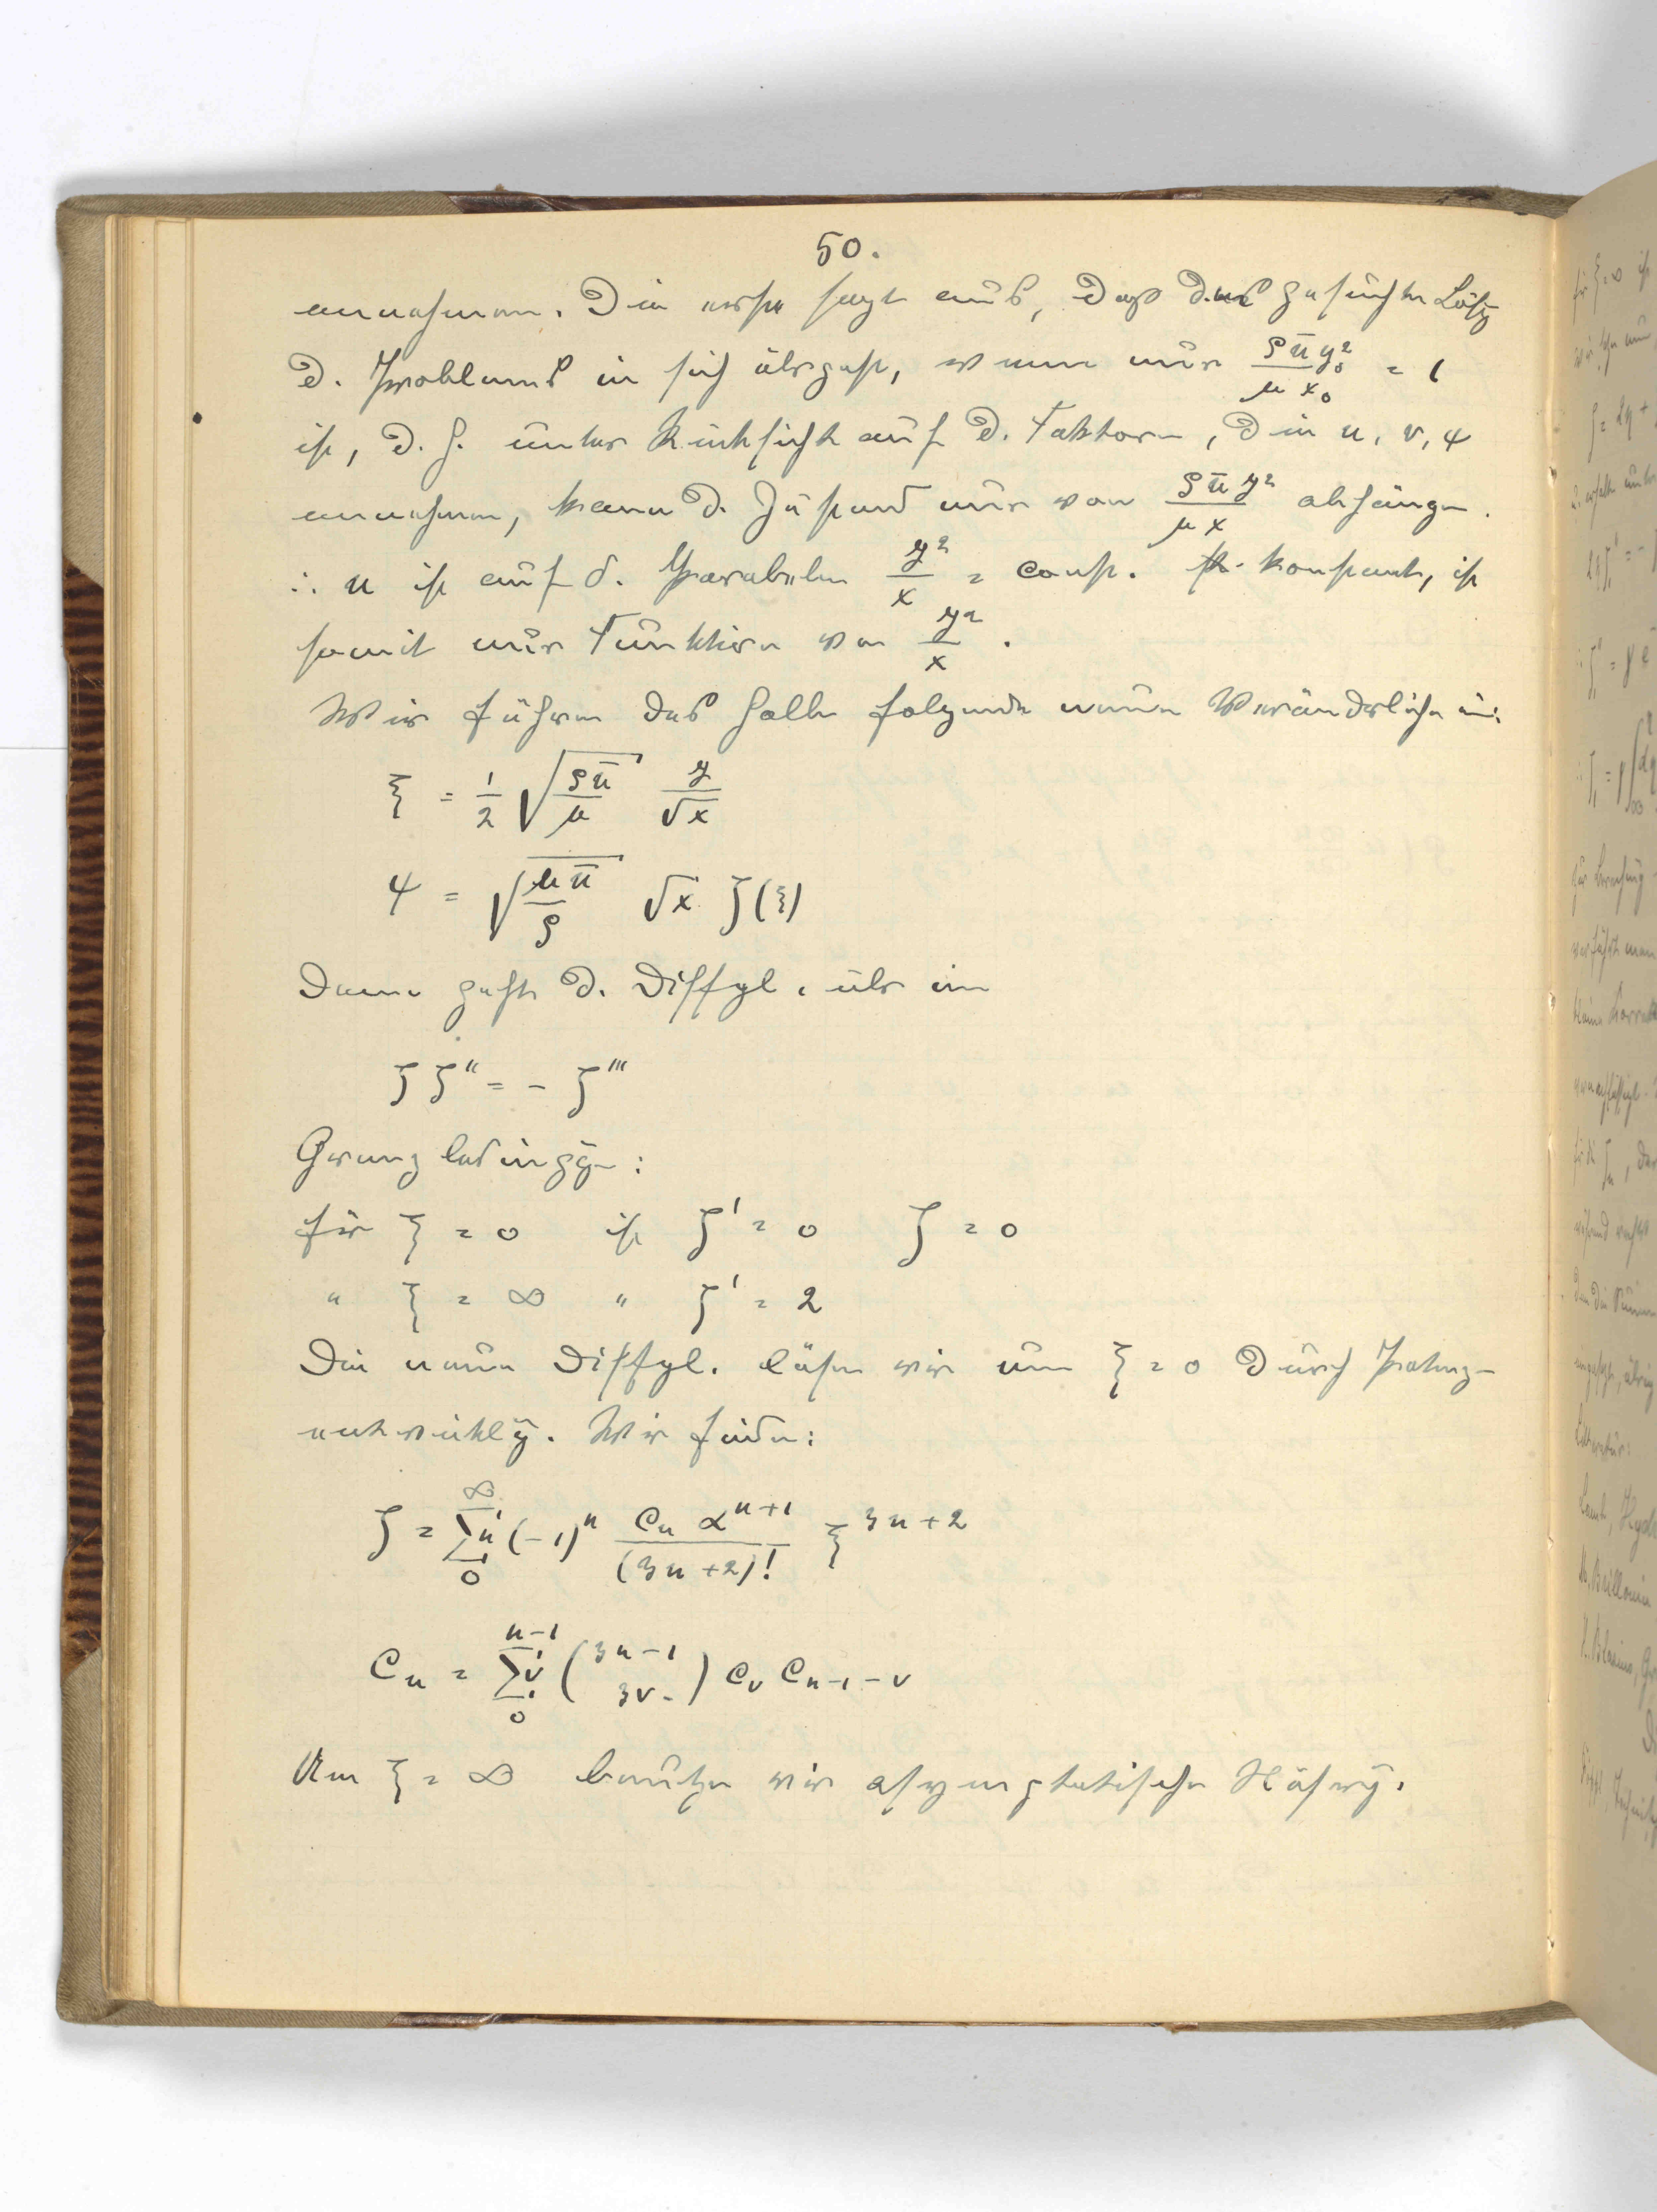 50.
annehmen. Die erste sagt aus, daß das gesuchte Lösg
d. Problems in sich übergeht, wenn nur ρūy₀²/μx₀ = 1
ist, d. h. unter Rücksicht auf d. Faktoren, die u, v, ψ
annehmen, kann d. Zustand nur von ρūy²/μx abhängen.
∴ u ist auf d. Parabeln y²/x = const. konstant, ist
somit nur Funktion von y²/x.
Wir führen deshalb folgende neue Veränderliche ein:
ξ = 1/2 √(ρū/μ) y/√x
ψ = √(μū/ρ) √x ζ(ξ)
Dann geht d. Diffgl. über in
ζ ζ'' = - ζ'''
Grenzbedingg̅n:
für ξ = 0 ist ζ' = 0 ζ = 0
" ξ = ∞ " ζ' = 2
Die neue Diffgl. lösen wir um ξ = 0 durch Potenz-
entwicklg. Wir finden:
ζ = ∑ₙ₌₀^∞ (-1)ⁿ cₙ αⁿ⁺¹/(3n+2)! ξ³ⁿ⁺²
cₙ = ∑ᵥ₌₀ⁿ⁻¹ (3n-1 / 3ν) cᵥ cₙ₋₁₋ᵥ
Um ξ = ∞ benutzen wir asymptotische Näherg.
für ξ = ∞ ist